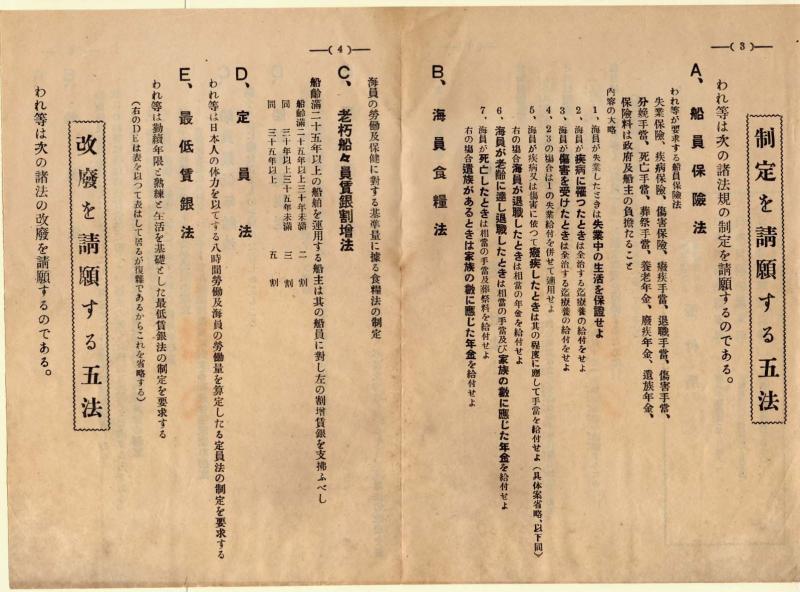 —(3)—
制定を請願する五法
われ等は次の諸法規の制定を請願するのである。
A、船員保險法
われ等が要求する船員保險法
失業保險、疾病保險、傷害保險、癈疾手當、退職手當、傷害手當、
分娩手當、死亡手當、葬祭手當、養老年金、癈疾年金、遺族年金、
保險料は政府及船主の負擔たること
內容の大略
1、海員が失業したときは失業中の生活を保證せよ
2、海員が疾病に罹つたときは全治する迄療養の給付をせよ
3、海員が傷害を受けたときは全治する迄療養の給付をせよ
4、2 3の場合は1の失業給付を併せて適用せよ
5、海員が疾病又は傷害に依つて癈疾したときは其の程度に應して手當を給付せよ(具体案省略、以下同)
右の場合海員が退職したときは相當の年金を給付せよ
6、海員が老齡に達し退職したときは相當の手當及び家族の數に應じた年金を給付せよ
7、海員が死亡したときは相當の手當及葬祭料を給付せよ
右の場合遺族があるときは家族の數に應じた年金を給付せよ
B、海員食糧法
—(4)—
海員の勞働及保健に對する基準量に據る食糧法の制定
C、老朽船々員賃銀割增法
船齡滿二十五年以上の船舶を運用する船主は其の船員に對し左の割增賃銀を支拂ふべし
船齡滿二十五年以上三十年未滿 二割
同 三十年以上三十五年未滿 三割
同 三十五年以上 五割
D、定員法
われ等は日本人の体力を以てする八時間勞働及海員の勞働量を算定したる定員法の制定を要求する
E、最低賃銀法
われ等は勤續年限と熟練と生活を基礎とした最低賃銀法の制定を要求する
(右のDEは表を以つて表はして居るが復雜であるからこれを省略する)
改廢を請願する五法
われ等は次の諸法の改廢を請願するのである。